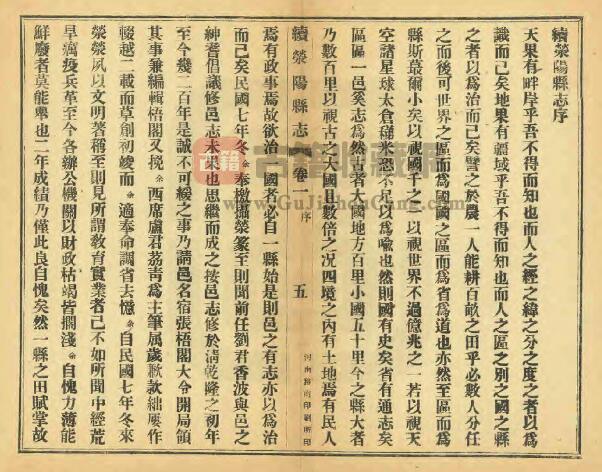 續滎陽縣志序
天果有畔岸乎吾不得而知也而人之經之緯之分之度之者以爲
識而已矣地果有疆域乎吾不得而知也而人之區之別之國之縣
之者以爲治而已矣譬之於農一人能耕百畝之田乎必數人分任
之而後可世界之區而爲國國之區而爲省爲道也亦然至區而爲
縣斯最爾小矣以視國千之一以視世界不過億兆之一若以視天
空諸星球太倉稊米恐不足以爲喩也然則國有史矣省有通志矣
區區一邑奚志爲然古者大國地方百里小國五十里今之縣大者
乃數百里以視古之大國且數倍之况四境之內有土地焉有民人
續滎陽縣志
卷一
序
五
河南商務印刷所印
焉有政事焉故欲治一國者必自一縣始是則邑之有志亦以爲治
而已矣民國七年冬余奉檄攝滎篆至則聞前任劉君香波與邑之
紳耆倡議修邑志未果也思繼而成之按邑志修於淸乾隆之初年
至今幾二百年是誠不可緩之事乃請邑名宿張梧閣大令開局領
其事兼編輯梧閣又挽余西席盧君荔靑爲主筆屬歲歉款絀屢作
輟越二載而草創初竣而余適奉命調省去憶余自民國七年冬來
滎滎夙以文明著稱至則見所謂敎育實業者已不如所聞中經荒
旱癘疫兵革至今各辦公機關以財政枯竭皆擱淺余自愧力薄能
鮮廢者莫能舉也二年成績乃僅此良自愧矣然一縣之田賦掌故
古籍
古籍收藏网
www.GuJiShuCang.Com